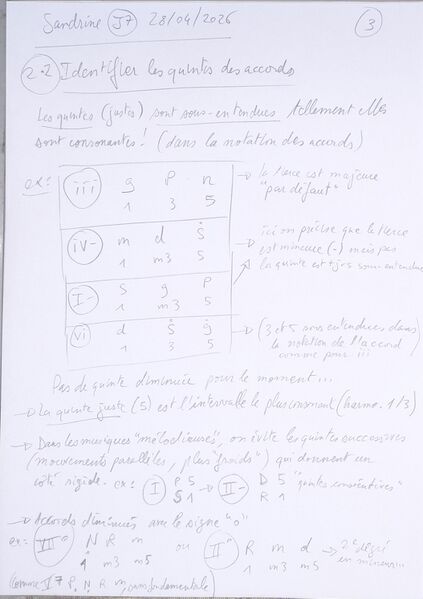 Sandrine J7 28/04/2026 3
2.2 Identifier les quintes des accords
Les quintes (justes) sont sous-entendues tellement elles
sont consonantes! (dans la notation des accords)
ex: iii g P n → la tierce est majeure
1 3 5 "par défaut"
iv- m d Ṡ → ici on précise que la tierce
1 m3 5 est mineure (-) mais pas
I- S g P la quinte est tjrs sous-entendue
1 m3 5
vi d Ṡ ġ → (3 et 5 sous entendues dans
1 3 5 la notation de l'accord
comme pour iii
Pas de quinte diminuée pour le moment...
→ La quinte juste (5) est l'intervalle le plus consonant (harmo. 1/3)
→ Dans les musiques "mélodieuses", on évite les quintes successives
(mouvements parallèles, plus "froids") qui donnent un
côté rigide. ex: I P 5 → II- D 5 "quintes consécutives"
S 1 R 1
→ Accords diminués avec le signe "o"
ex: VII° N R m ou II° R m d → 2e degré
1 m3 m5 1 m3 m5 en mineur...
(comme V7 P, N R m, sans fondamentale)